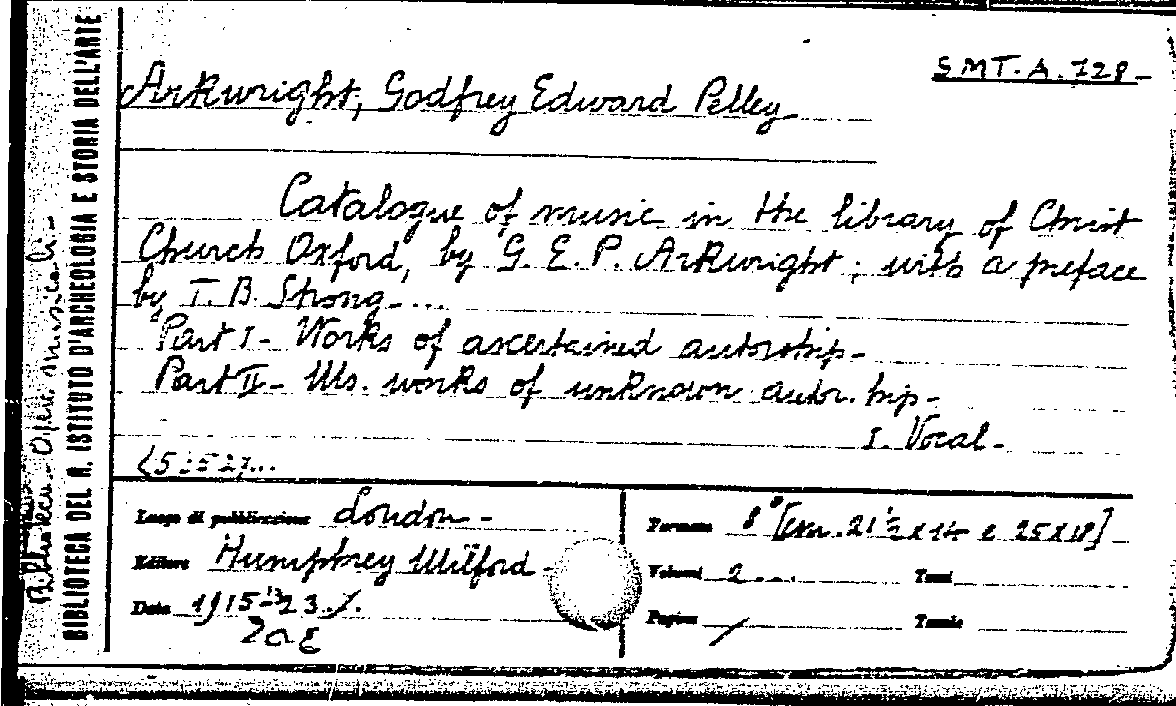 SMT.A.728-
Arkwright, Godfrey Edward Pelley
Catalogue of music in the library of Christ
Church Oxford, by G. E. P. Arkwright; with a preface
by T. B. Strong....
Part I- Works of ascertained autorship-
Part II- Ms. works of unknown autor.hip-
I. Vocal-
Luogo di pubblicazione London-
Editore Humphrey Milford-
Data 1915-23
Formato 8° [cm. 21½ x 14 e 25x18]
Volumi 2... Tomi
Pagine / Tavole
BIBLIOTECA DEL R. ISTITUTO D'ARCHEOLOGIA E STORIA DELL'ARTE